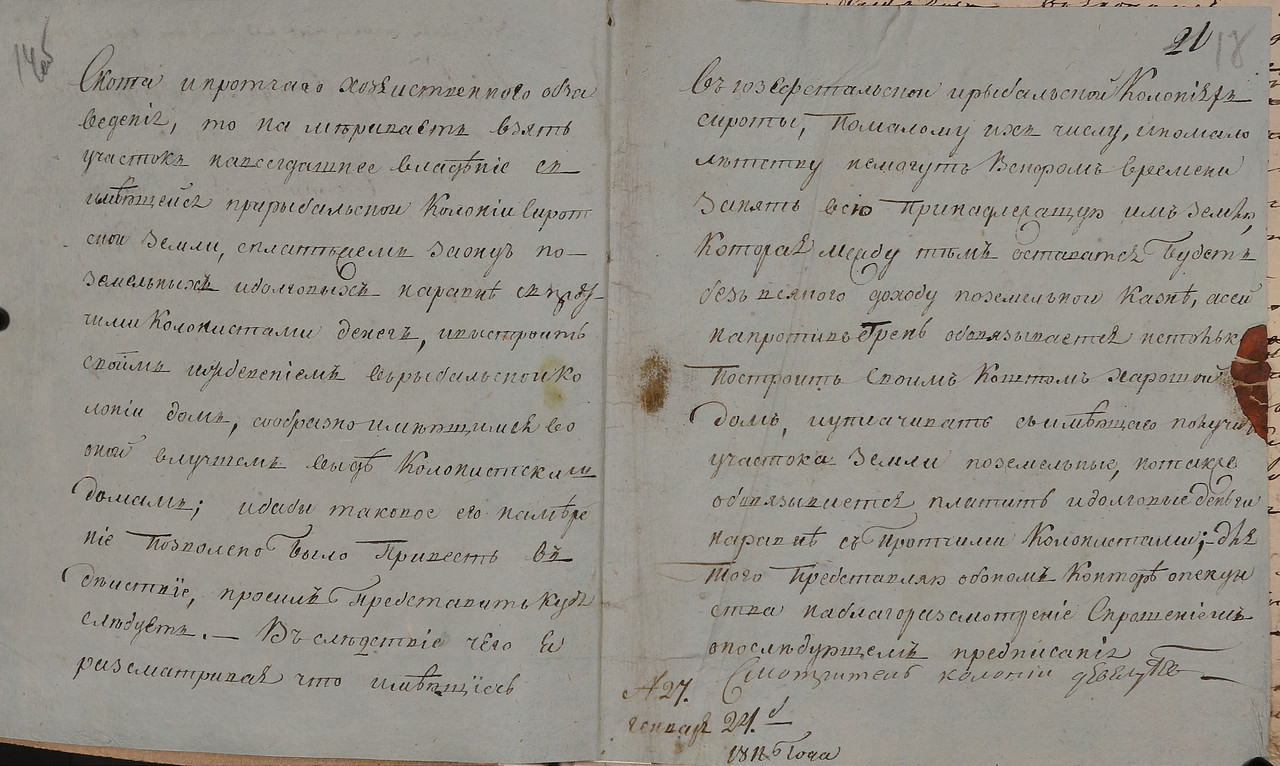 14об
Скота и протчаго хозяиственного обза
ведения, то на мѣриваетъ взять
участокъ навсегдашнее владѣние съ
имѣющейся прирыбальской Колонии сирот
ской земли, сплатъжемъ заонуъ по-
земельныхъ идолговыхъ наравнѣ спро
чими Колонистами денегъ, ивыстроить
своимъ иждевениемъ върыбальской ко
лонии домъ, сообразно имѣющимся во
оной влучшемъ видѣ Колонистским
домамъ; и дабы таковое его намѣре
ние позволено было Привесть въ
дѣиствие, просилъ Представить куда
слѣдуетъ. — Въслѣдствие чего я
разсматривая что имѣющиеся
21 18
Въ иозефстальской ирыбальской Колонияхъ
сироты, помалому ихъ числу, ипомало
лѣтству немогутъ вскоромъ времени
Занять всю Принадлежащую имъ землю,
Которая между тѣмъ оставатся будетъ
безъ всякого доходу поземельной казнѣ, асей
напротивъ Гренъ обовязывается нетолько
Построить своимъ Коштомъ харошой
домъ, иуплачивать съимѣющаго получить
участока земли поземельные, но также
обовязывается платить идолговые деньги
наравнѣ съ Протчими Колонистами; — для
того Представляю обономъ Конторѣ опекун
ства наблагоразсмотрение Спрошениемъ
опослѣдующемъ предписания
Смотритель колонии
№ 27.
генваря 24.
1816 Года